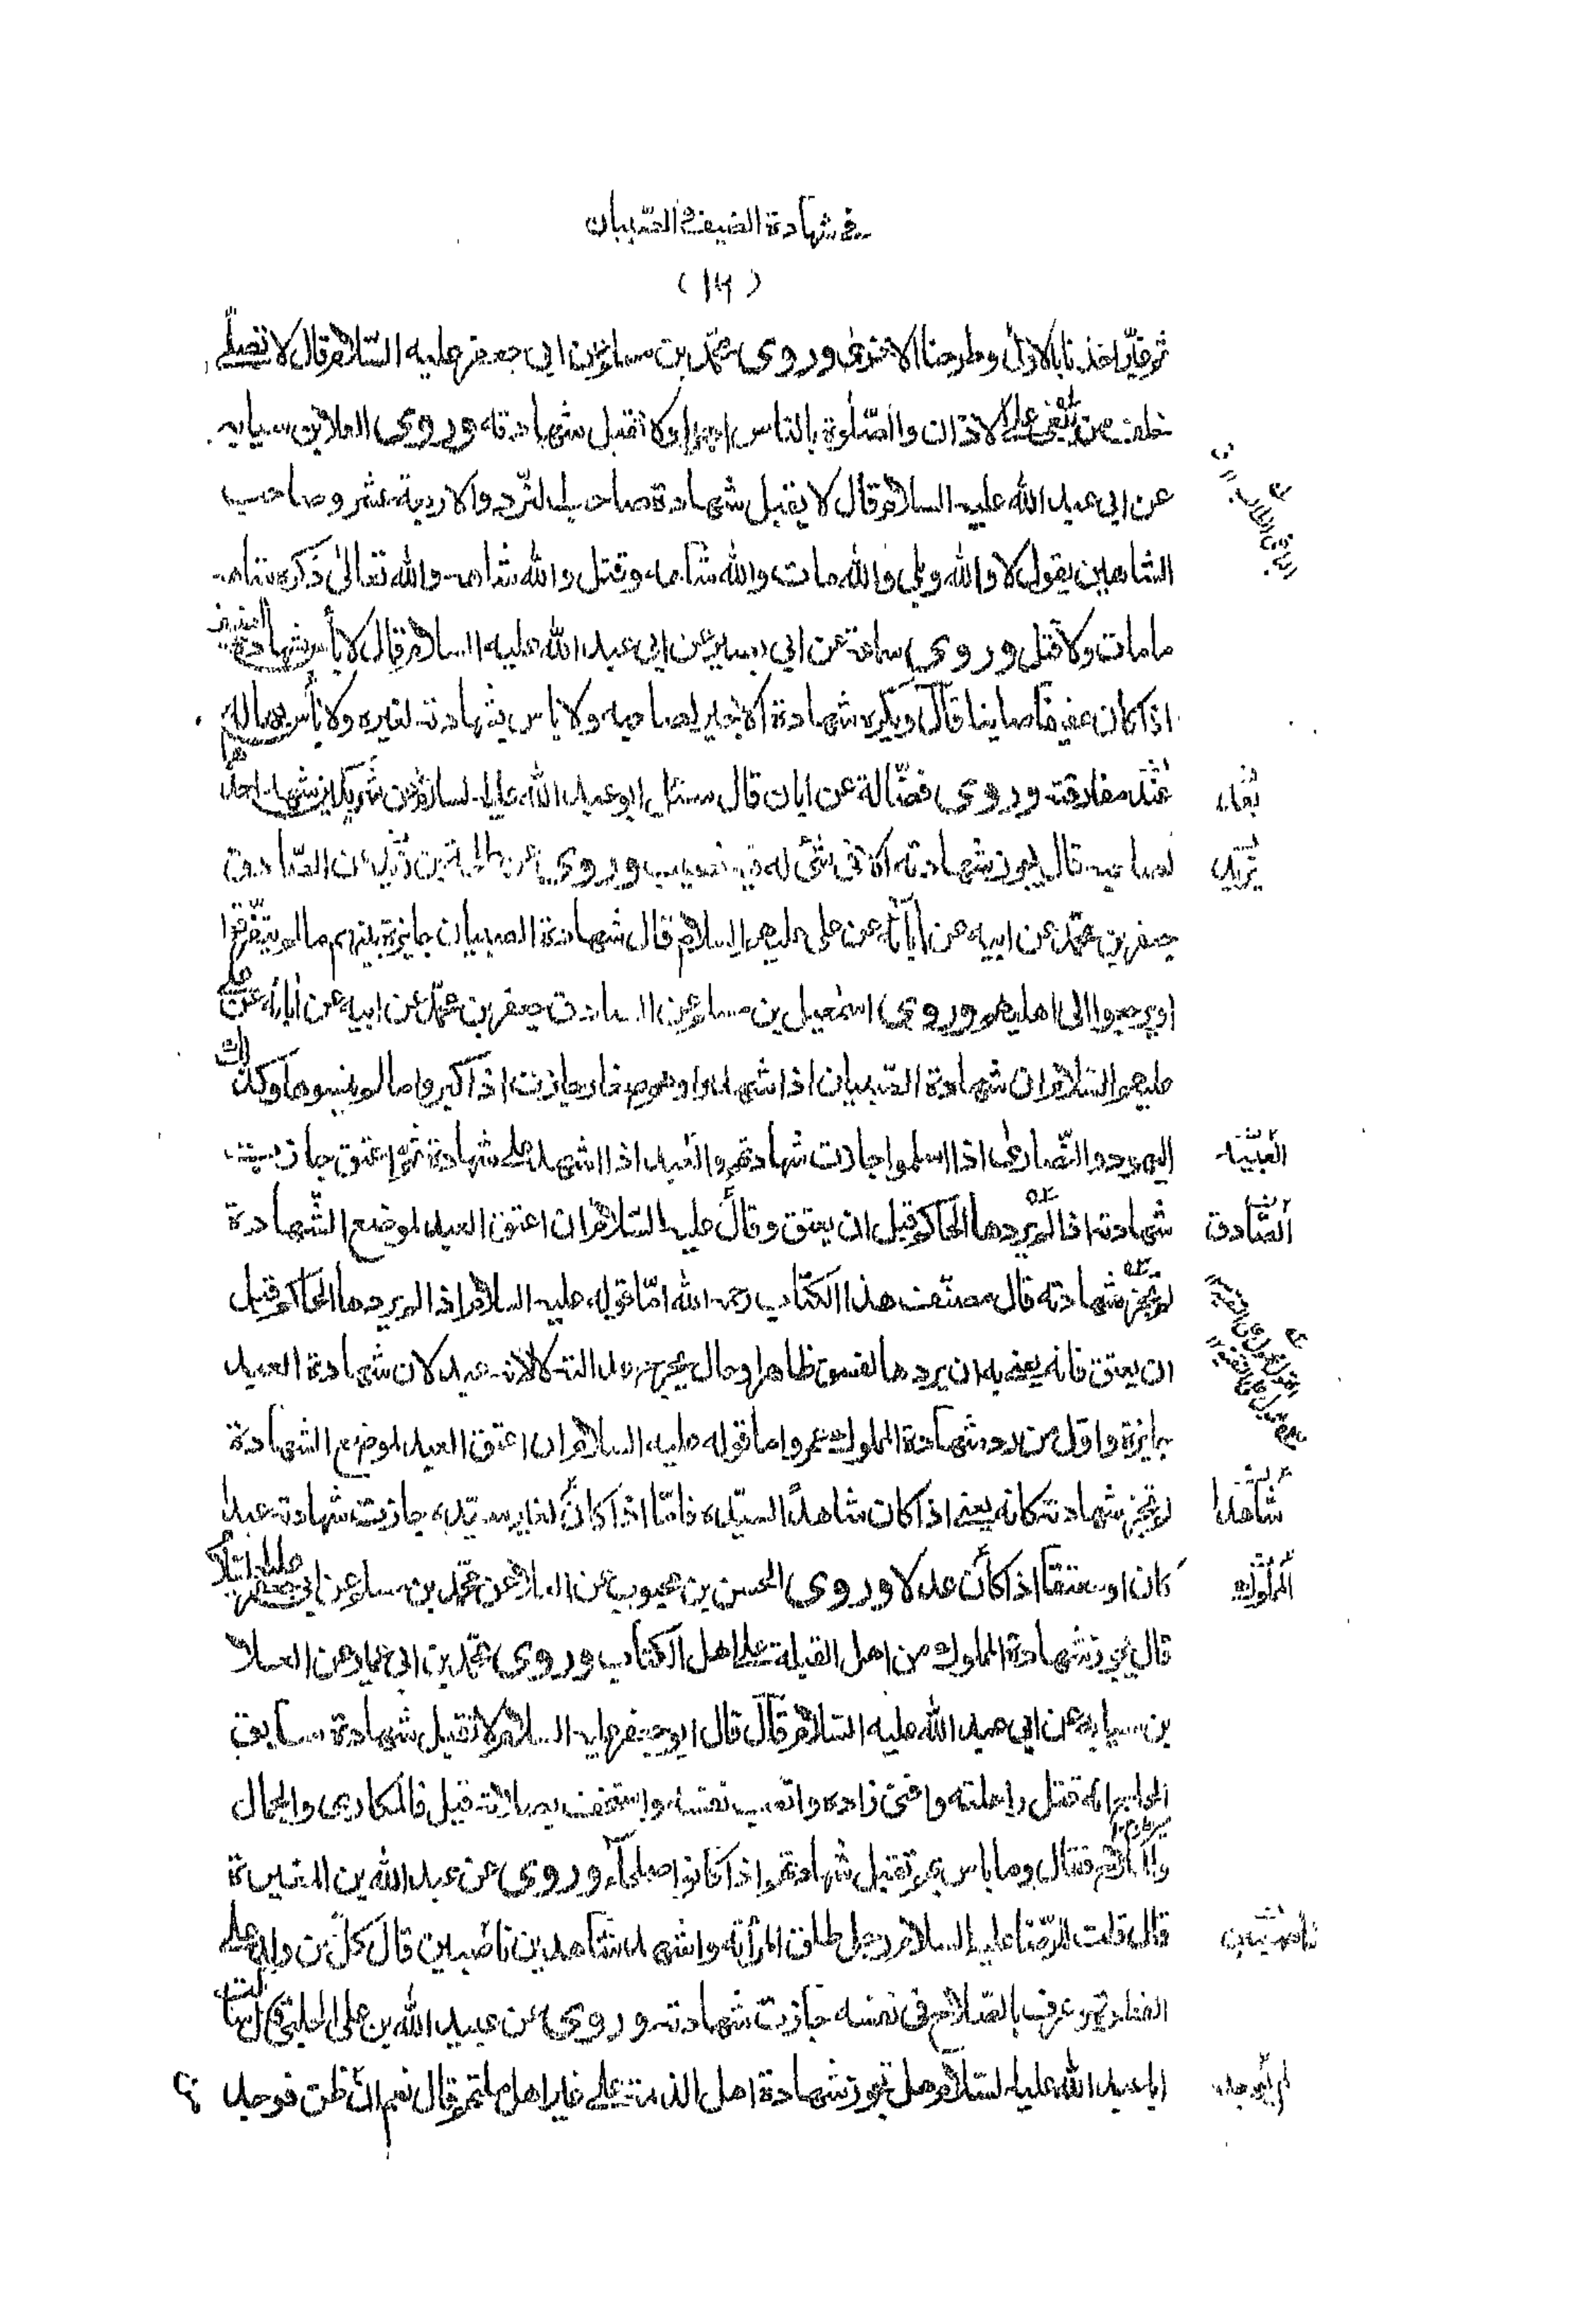 في شهادة الضيف و الصّبيان
(١٧)
اخذنا بالاول وطرحنا الاخرى وروى محمّد بن مسلم عن ابي جعفر عليه السّلام قال لا تصلّ
خلف من يبغى على الاذان والصّلوة بالناس اجرا ولا تقبل شهادته وروى العلا بن سيابه
عن ابي عبد الله عليه السلام قال لا يقبل شهادة صاحب النرد والاربعة عشر وصاحب
الشاهين يقول لا والله وبلى والله مات والله شاهه وقتل والله شاهه والله تعالى ذكره شاهه
ما مات ولا قتل وروى سماعة عن ابي بصير عن ابي عبد الله عليه السلام قال لا بأس بشهادة الضيف
اذا كان عفيفا صاينا قال ويكره شهادة الاجير لصاحبه ولا باس بشهادته لغيره ولا بأس بها له
عند مفارقته وروى فضّالة عن ابان قال سئل ابو عبد الله عليه السلام عن شريكين شهد احدهما
لصاحبه قال يجوز شهادته الا في شئ له فيه نصيب وروى عن طلحة بن زيد عن الصّادق
جعفر بن محمّد عن ابيه عن آبائه عن على عليهم السلام قال شهادة الصبيان جايزة بينهم ما لم يتفرّقوا
او يرجعوا الى اهليهم وروى اسمعيل بن مسلم عن الصادق جعفر بن محمّد عن ابيه عن آبائه عن على
عليهم السّلام ان شهادة الصّبيان اذا شهدوا وهم صغار جازت اذا كبروا ما لم ينسوها وكذلك
اليهود والنّصارى اذا اسلموا جازت شهادتهم والعبد اذا اشهد على شهادة ثم اعتق جازت
شهادته اذا لم يردها الحاكم قبل ان يعتق وقال عليه السّلام ان اعتق العبد لموضع الشّهادة
لم تجز شهادته قال مصنّف هذا الكتاب رحمه الله امّا قوله عليه السلام اذا لم يردها الحاكم قبل
ان يعتق فانه يعنى به ان يردها لفسق ظاهر او حال يجرح عدالته لا لانه عبد لان شهادة العبد
جايزة واوّل من رد شهادة المملوك عمر واما قوله عليه السلام ان اعتق العبد لموضع الشهادة
لم تجز شهادته كانه يعنى اذا كان شاهدًا لسيّده فامّا اذا كان لغير سيّده جازت شهادته عبدا
كان او معتقا اذا كان عدلا وروى الحسن بن محبوب عن العلا عن محمّد بن مسلم عن ابي جعفر عليه السّلام
قال يجوز شهادة المملوك من اهل القبلة على اهل الكتاب وروى محمّد بن ابي عمير عن العلا
بن سيابه عن ابي عبد الله عليه السّلام قال قال ابو جعفر عليه السلام لا تقبل شهادة سابق
الحاج انه قتل راحلته وافنى زاده واتعب نفسه واستخف بصلاته قيل فالمكارى والجمال
والملاح فقال وما باس بهم تقبل شهادتهم اذا كانوا صلحآء وروى عن عبد الله بن المغيرة
قال قلت للرّضا عليه السلام رجل طلق امرأته واشهد شاهدين ناصبين قال كل من ولد على
الفطرة وعرف بالصّلاح في نفسه جازت شهادته وروى عن عبيد الله بن على الحلبي قال سالت
ابا عبد الله عليه السّلام هل تجوز شهادة اهل الذمة على غير اهل ملتهم قال نعم ان لم يوجد
يزيد
الصّادق
شاهدا
المملوك
ناصبيين